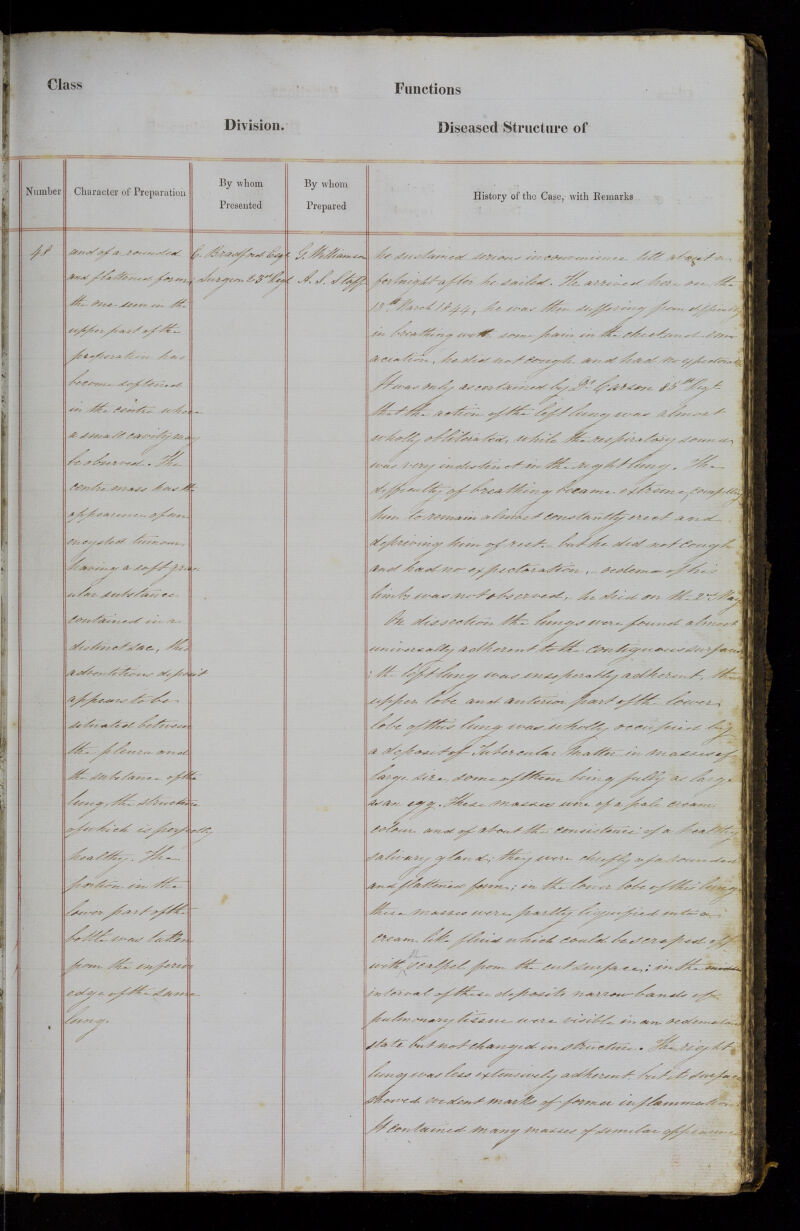 Class
Functions
Division.
Diseased Structure of
Number
Character of Preparation
By whom
Presented
By whom
Prepared
History of the Case, with Remarks
48
and of a rounded
and flattened form,
the one seen in the
upper part of the
preparation has
become softened
in the centre where
a small cavity may
be observed. The
centre mass has the
appearance of an
encysted tumour
having a soft gran
ular substance
contained in a
distinct sac, this
adventitious deposit
appears to be
situated between
the pleura and
the substance of the
lung, the structure
of which is perfectly
healthy. The
portion in the
lower part of the
bottle was taken
from the inferior
edge of the same
lung.
C. Bradford Esqr
Surgeon 23rd Regt
G. Williamson
A. S. Staff
he sustained serious inconvenience till about a
fortnight after he sailed. He arrived here on the
13th March 1844, he was then suffering from difficulty
in breathing with some pain in the chest and
aciation, he did not cough and had no expectoration
It was only ascertained by Dr. Carson 85th Regt
that the action of the left lung was almost
wholly obliterated, while the respiratory sound
was very indistinct in the right lung. The
difficulty of breathing became extreme, compelling
him to remain almost constantly erect and
depriving him of rest. but he did not cough
and had no expectoration, oedema of his
limbs was not observed, he died on the 2nd May
On dissection the lungs were found almost
universally adherent to the contiguous surfaces
; the left lung was inseperably adherent, the
upper lobe and anterior part of the lower
lobe of this lung was wholly occupied by
a deposit of Tubercular Matter in masses of
large size some of them being fully as large
as an egg. These masses were of a pale cream
colour and of about the consistence of a healthy
salivary gland; they were chiefly of a rounded
and flattened form; in the lower lobe of this lung
these masses were partly liquified into a
cream like fluid which could be scraped off
with a scalpel from the cut surface; in the
interval of these deposits narrow bands of
pulmonary tissue were visible in an oedematous
state but not changed in structure. The right
lung was less extensively adherent but its surface
showed evident marks of former inflammation
It contained many masses of similar appearance